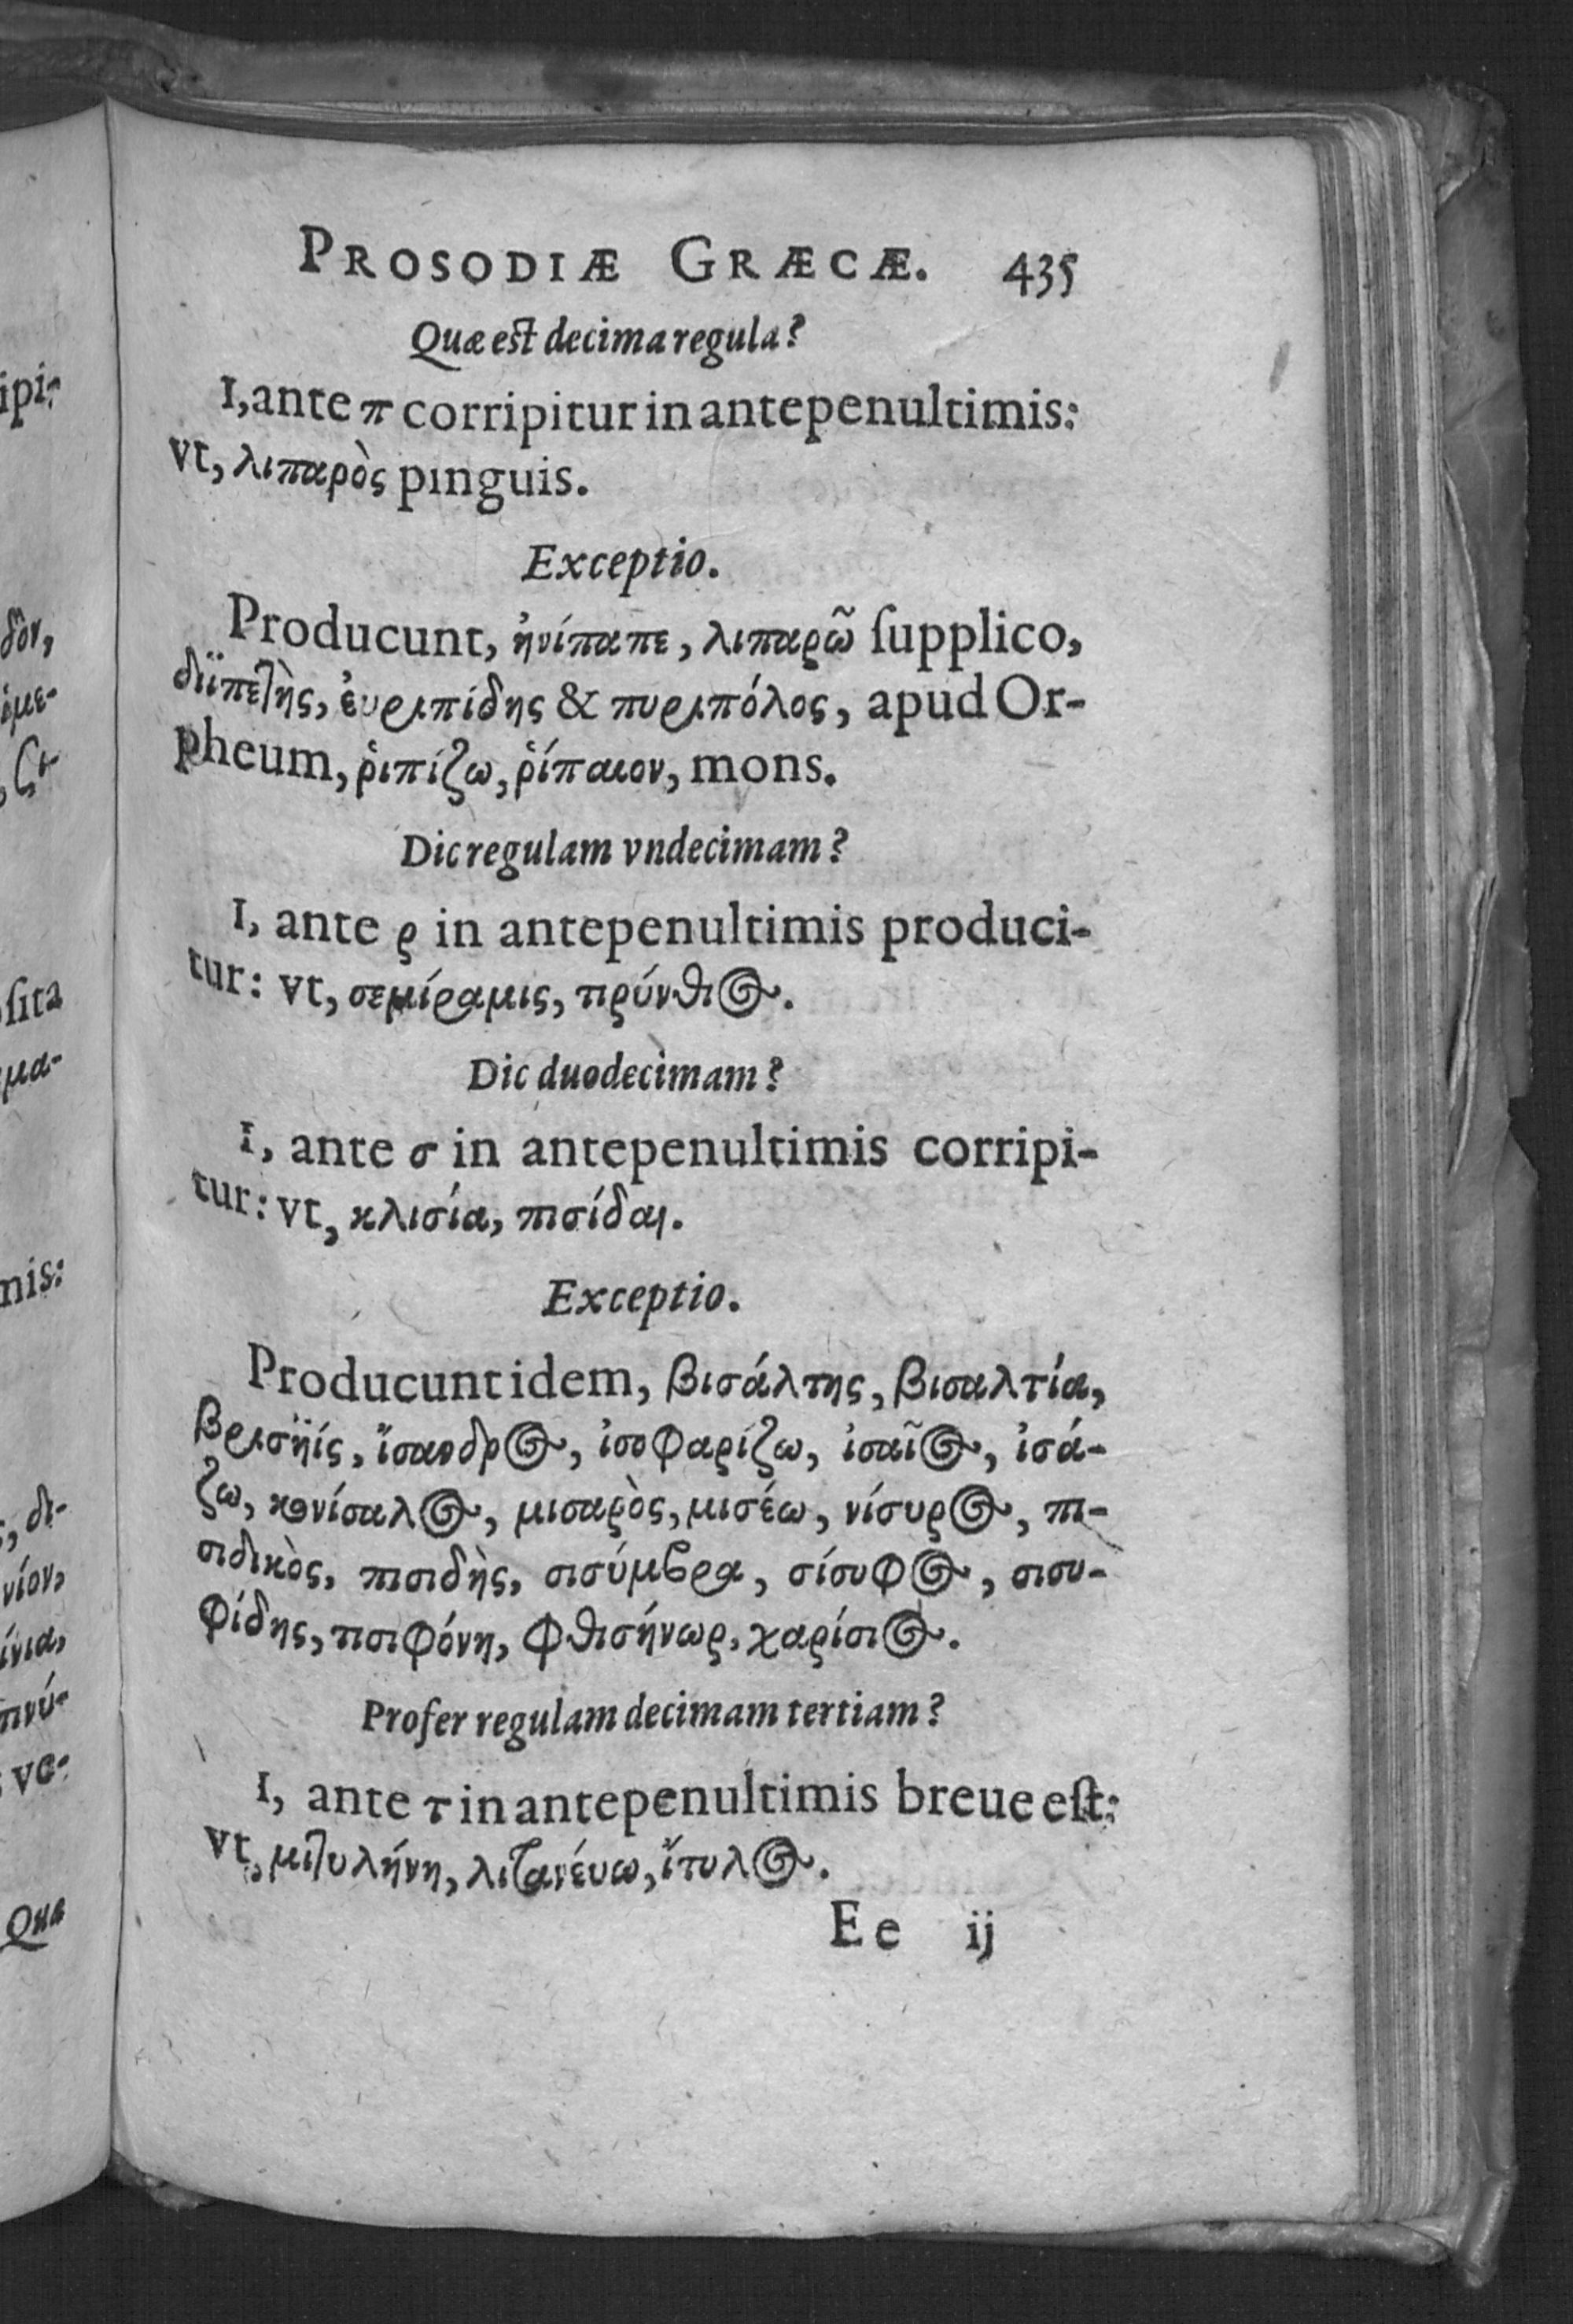 PROSODIÆ GRÆCÆ. 435
Quæ est decima regula?
I, ante π corripitur in antepenultimis:
vt, λιπαρὸς pinguis.
Exceptio.
Producunt, ἠνίπαπε, λιπαρῶ ſupplico,
διϊπετὴς, ἐυριπίδης & πυριπόλος, apud Or-
pheum, ῥιπίζω, ῥίπαιον, mons.
Dic regulam vndecimam?
I, ante ρ in antepenultimis produci-
tur: vt, σεμίραμις, τιρύνθιος.
Dic duodecimam?
I, ante σ in antepenultimis corripi-
tur: vt, κλισία, πισίδαι.
Exceptio.
Producunt idem, βισάλτης, βισαλτία,
βρισηῒς, ἴσανδρος, ἰσοφαρίζω, ἰσαῖος, ἰσά-
ζω, κονίσαλος, μισαρὸς, μισέω, νίσυρος, πι-
σιδικὸς, πισιδὴς, σισύμβρα, σίσυφος, σισυ-
φίδης, τισιφόνη, φθισήνωρ, χαρίσιος.
Profer regulam decimam tertiam?
I, ante τ in antepenultimis breue eſt:
vt, μιτυλήνη, λιτανέυω, ἴτυλος.
Ee ij
ipi-
δὸν,
ſita
μα-
mis:
δι-
νίον,
ίνια,
πνύ-
ve-
Qua